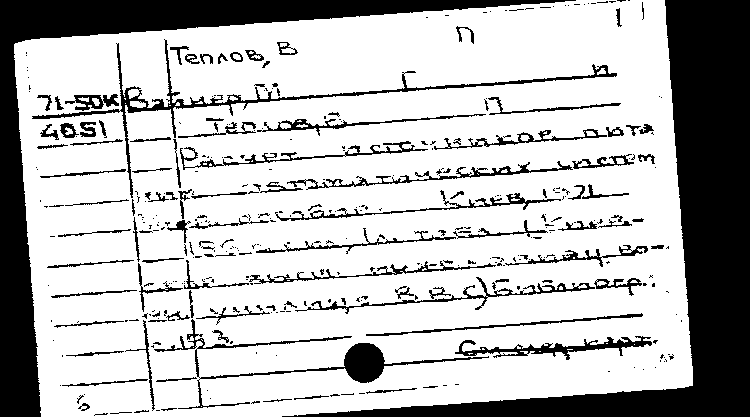 Теплов, В П 1
71-50К Вайнер, М Г и
4051 Теплов, В П
Расчет источников пита
ния автоматических систем
Учеб. пособие. Киев, 1971
156 с. с ил., 1 л. табл. (Киев-
ское высш. инженерно авиац. во-
ен. училище ВВС) Библиогр.:
с. 153.
См. след. карт.
6